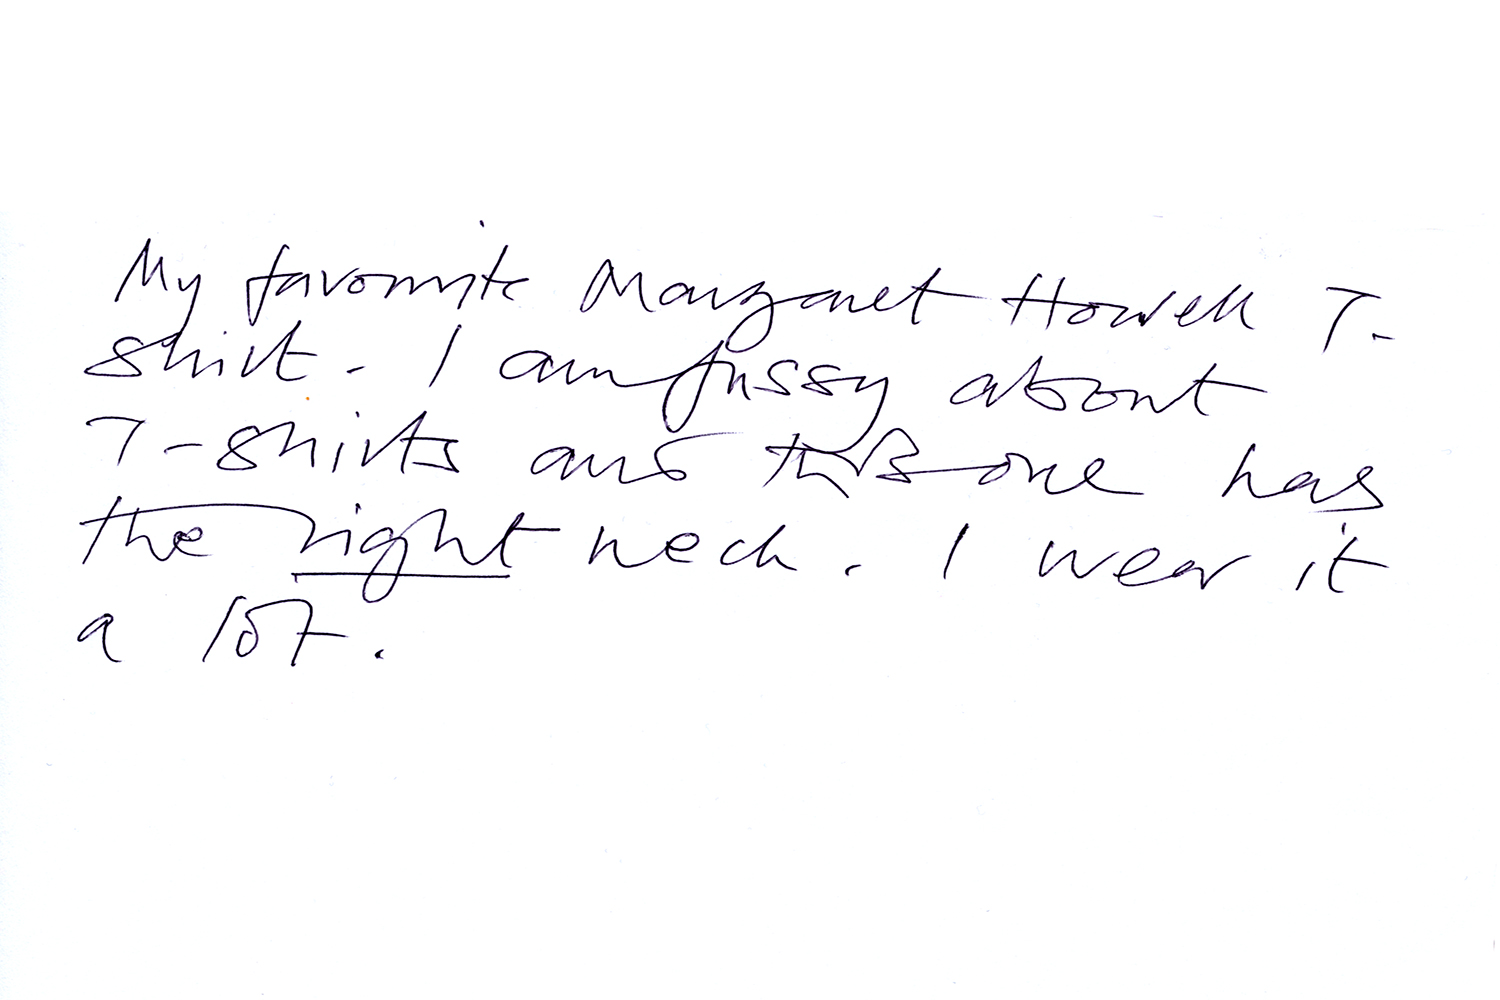 My favourite Margaret Howell T-
shirt. I am fussy about
T-shirts and this one has
the right neck. I wear it
a lot.